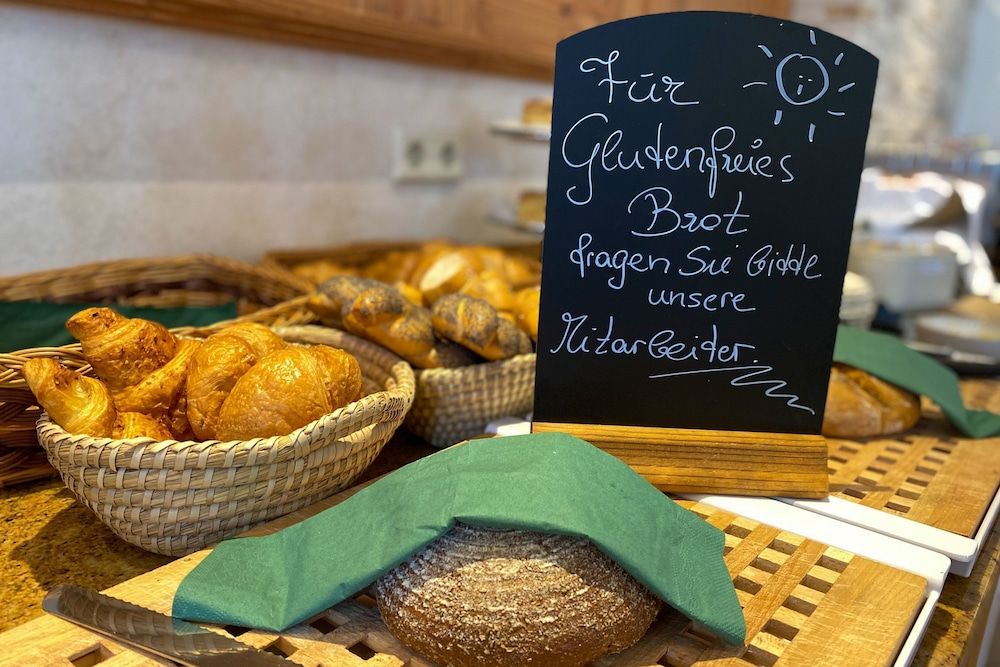 Für
Glutenfreies
Brot
fragen Sie bitte
unsere
Mitarbeiter.